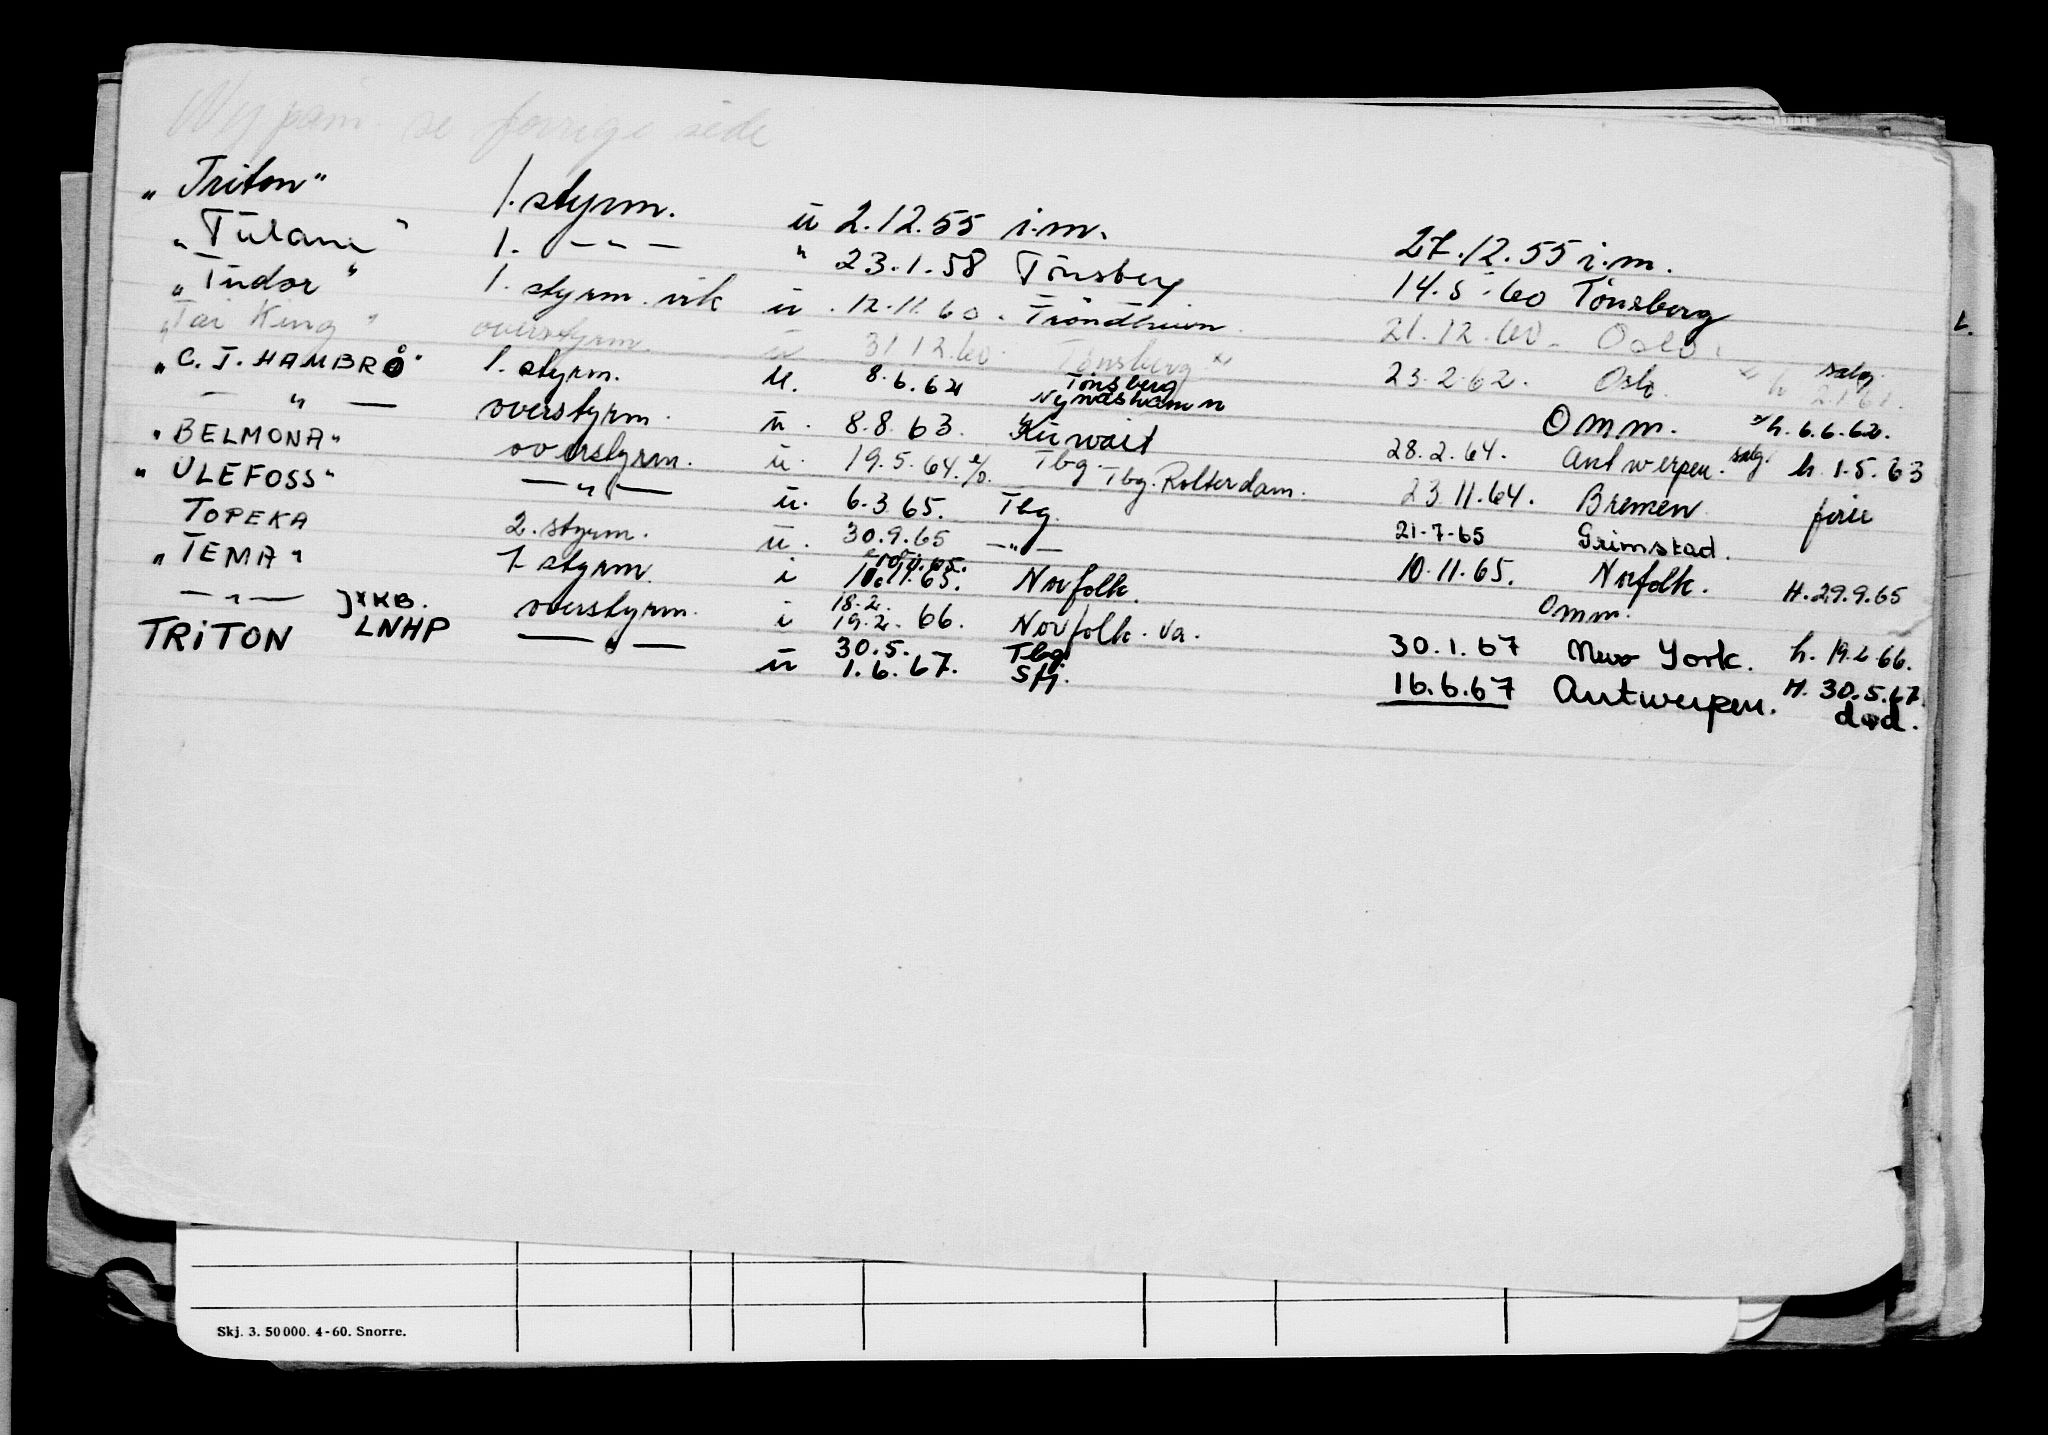 se forrige side
"Triton" 1. styrm. u 2.12.55 i.m. 27.12.55 i.m.
"Tulane" 1. — " — " 23.1.58 Tønsberg 14.5.60 Tønsberg
"Tudor" 1. styrm. vik u. 12.11.60. Trondheim 21.12.60. Oslo.
"Tai King" overstyrm. u 31.12.60. Tønsberg 23.2.62. Oslo. h 2.1.61.
"C. J. HAMBRO" 1. styrm. u. 8.6.62 Tønsberg Nynäshamn Omm. salg. h. 6.6.62.
— " — overstyrm. u. 8.8.63. Kuwait 28.2.64. Antwerpen. salg. h. 1.5.63
"BELMONA" overstyrm. u. 19.5.64. Tbg. Tbg. Rotterdam. 23.11.64. Bremen ferie
"ULEFOSS" — " — u. 6.3.65. Tbg. 21-7-65 Grimstad.
TOPEKA 2. styrm. u. 30.9.65 — " — 10.11.65. Norfolk. H. 29.9.65
"TEMA" 1. styrm. i 10.11.65. Norfolk. Omm.
— " — overstyrm. i 18.2. 19.2. 66. Norfolk. Va. 30.1.67 New York. h. 19.2.66.
TRITON KB. LNHP — " — u 30.5. 1.6.67. Tbg. Sfj. 16.6.67 Antwerpen. H. 30.5.67.
død.
L.
Skj. 3. 50000. 4-60. Snorre.